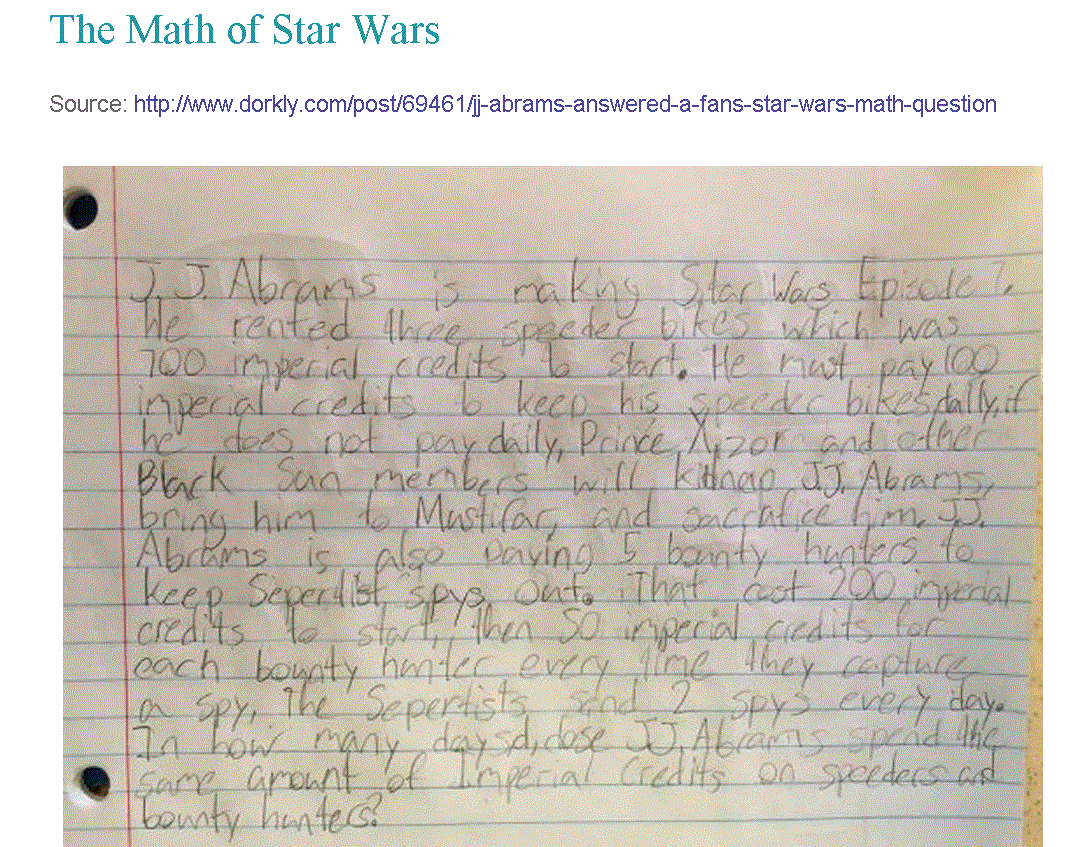 The Math of Star Wars
Source: http://www.dorkly.com/post/69461/jj-abrams-answered-a-fans-star-wars-math-question
J.J. Abrams is making Star Wars Episode 7.
He rented three speeder bikes which was
700 imperial credits to start. He must pay 100
imperial credits to keep his speeder bikes daily, if
he does not pay daily, Prince Xizor and other
Black Sun members will kidnap J.J. Abrams,
bring him to Mustifar, and sacrafice him. J.J.
Abrams is also paying 5 bounty hunters to
keep Sepertist spys out. That cost 200 imperial
credits to start, then 50 imperial credits for
each bounty hunter every time they capture
a spy, The Sepertists send 2 spys every day.
In how many days d, dose J.J. Abrams spend the
same amount of Imperial Credits on speeders and
bounty hunters?